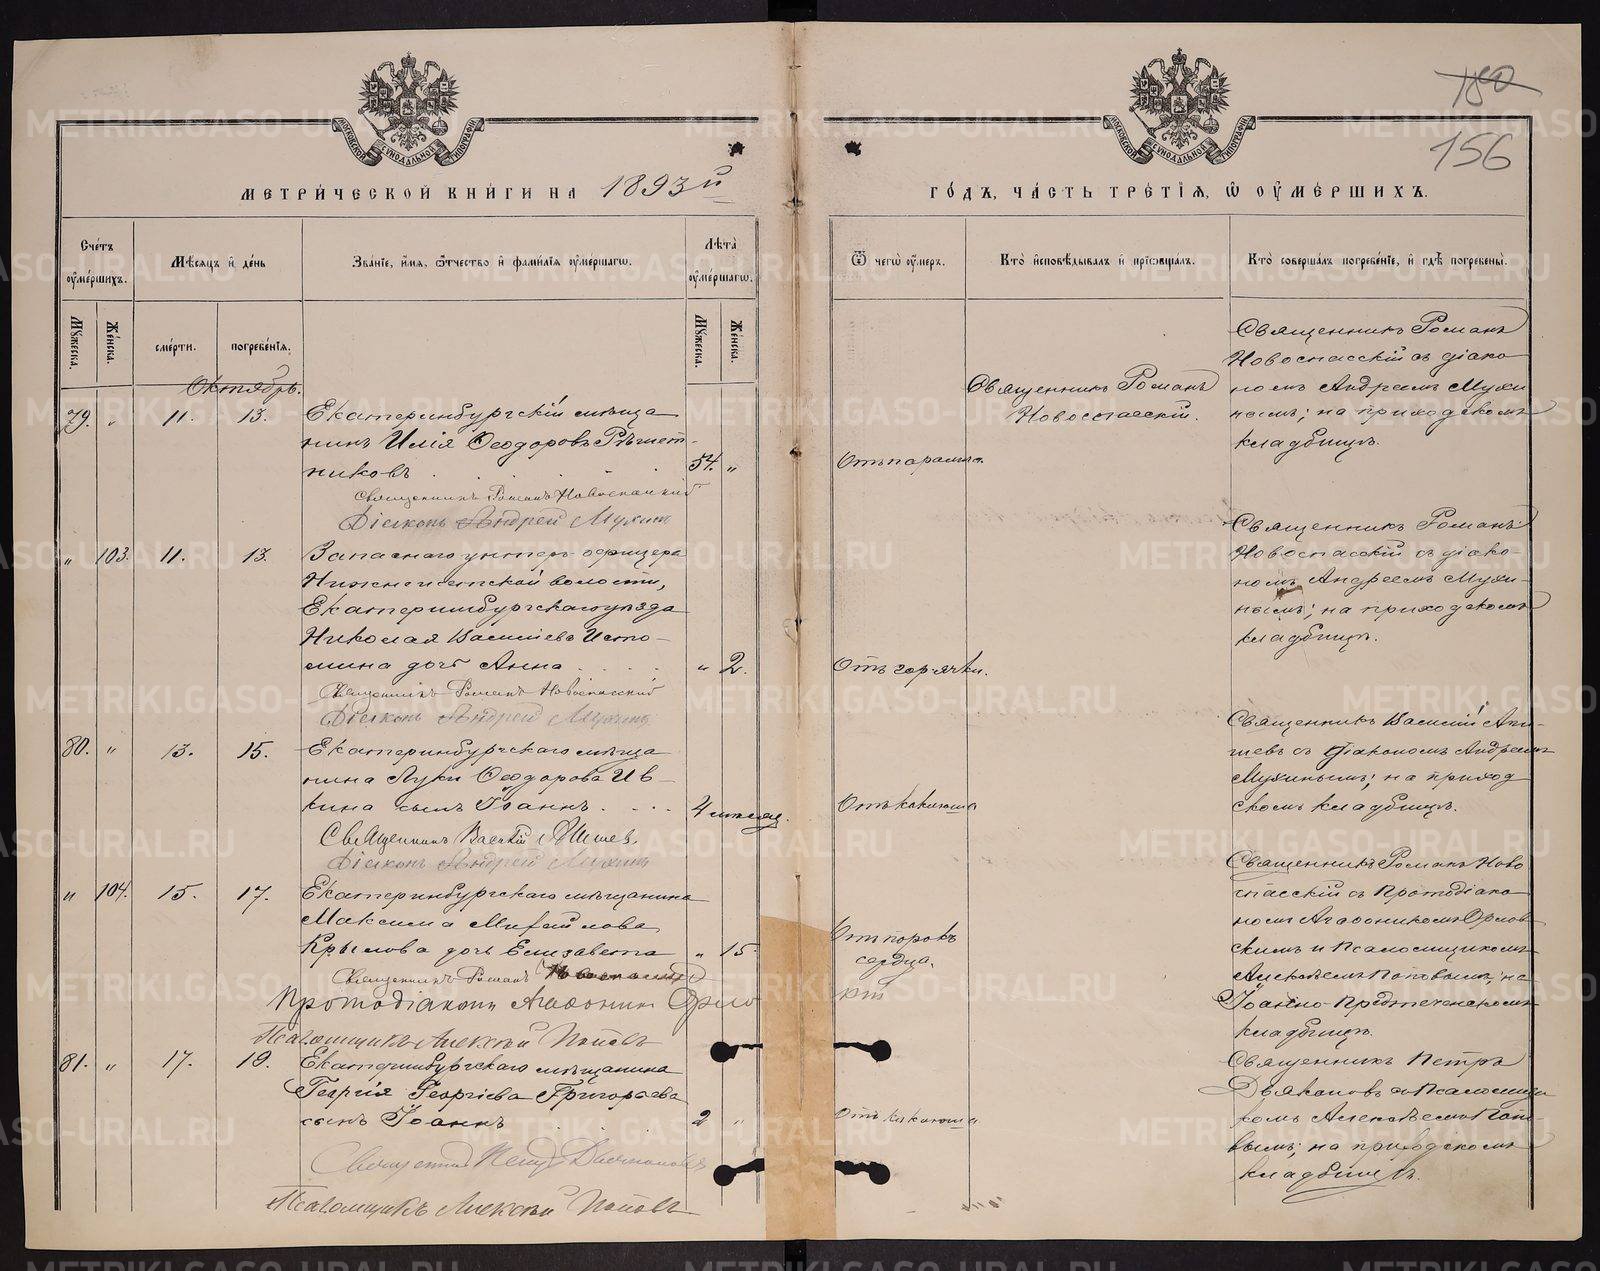 180
156
МОСКОВСКОЙ СѴНОДАЛЬНОЙ ТИПОГРАФІИ
МОСКОВСКОЙ СѴНОДАЛЬНОЙ ТИПОГРАФІИ
МЕТРИ́ЧЕСКОЙ КНИ́ГИ НА 1893й
ГО́ДЪ, ЧА́СТЬ ТРЕ́ТІЯ, Ѡ ОУМЕ́РШИХЪ.
Сче́тъ оумершихъ.
Мѣ́сяцъ и де́нь
Зва́ніе, и́мя, ѻтчество и фами́лія оуме́ршагѡ.
Лѣта̀ оуме́ршагѡ.
Ѿ чегѡ оумеръ.
Кто̀ исповѣ́дывалъ и пріѡбща́лъ.
Кто̀ соверша́лъ погребе́ніе, и гдѣ̀ погребены̀.
Му́жеска.
Же́нска.
сме́рти.
погребе́нія.
Му́жеска.
Же́нска.
Октябрь.
79. " 11. 13.
Екатеринбургскій мѣща
нинъ Илія Ѳеодоровъ Рѣшет-
никовъ . . . . 54. "
Священникъ Романъ Новоспасскій
Діаконъ Андрей Мухинъ
Отъ паралича.
Священникъ Романъ
Новоспасскій.
Священникъ Романъ
Новоспасскій съ діако
номъ Андреемъ Мухи
нымъ; на приходскомъ
кладбищѣ.
" 103. 11. 13.
Запаснаго унтеръ-офицера
волости,
Екатеринбургскаго уѣзда
Николая Васильева Исто-
мина дочь Анна . . . . " 2.
Священникъ Романъ Новоспасскій
Діаконъ Андрей Мухинъ
Отъ горячки.
Священникъ Романъ
Новоспасскій съ діако-
номъ Андреемъ Мухи-
нымъ; на приходскомъ
кладбищѣ.
80. " 13. 15.
Екатеринбургскаго мѣща
нина Луки Ѳеодорова Ив-
кина сынъ Іоаннъ . . . . 4 мѣсяц.
Священникъ Василій
Діаконъ Андрей Мухинъ
Отъ
Священникъ Василій
съ діакономъ Андреемъ
Мухинымъ; на приход
скомъ кладбищѣ.
" 104. 15. 17.
Екатеринбургскаго мѣщанина
Максима Михайлова
Крылова дочь Елизавета " 15
Священникъ Романъ Новоспасскій
Протодіаконъ Агаѳоникъ Орло
Псаломщикъ Алексѣй Поповъ
Отъ порокъ
сердца.
Священникъ Романъ Ново
спасскій съ Протодіако
номъ Агаѳоникомъ Орлов
скимъ и Псаломщикомъ
Алексѣемъ Поповымъ; на
Іоанно-Предтеченскомъ
кладбищѣ.
81. " 17. 19.
Екатеринбургскаго мѣщанина
Георгія Георгіева Григорьева
сынъ Іоаннъ . . . . 2 "
Священникъ Петръ Дьяконовъ
Псаломщикъ Алексѣй Поповъ
Отъ
Священникъ Петръ
Дьяконовъ съ Псаломщи
комъ Алексѣемъ Попо-
вымъ; на приходскомъ
кладбищѣ.